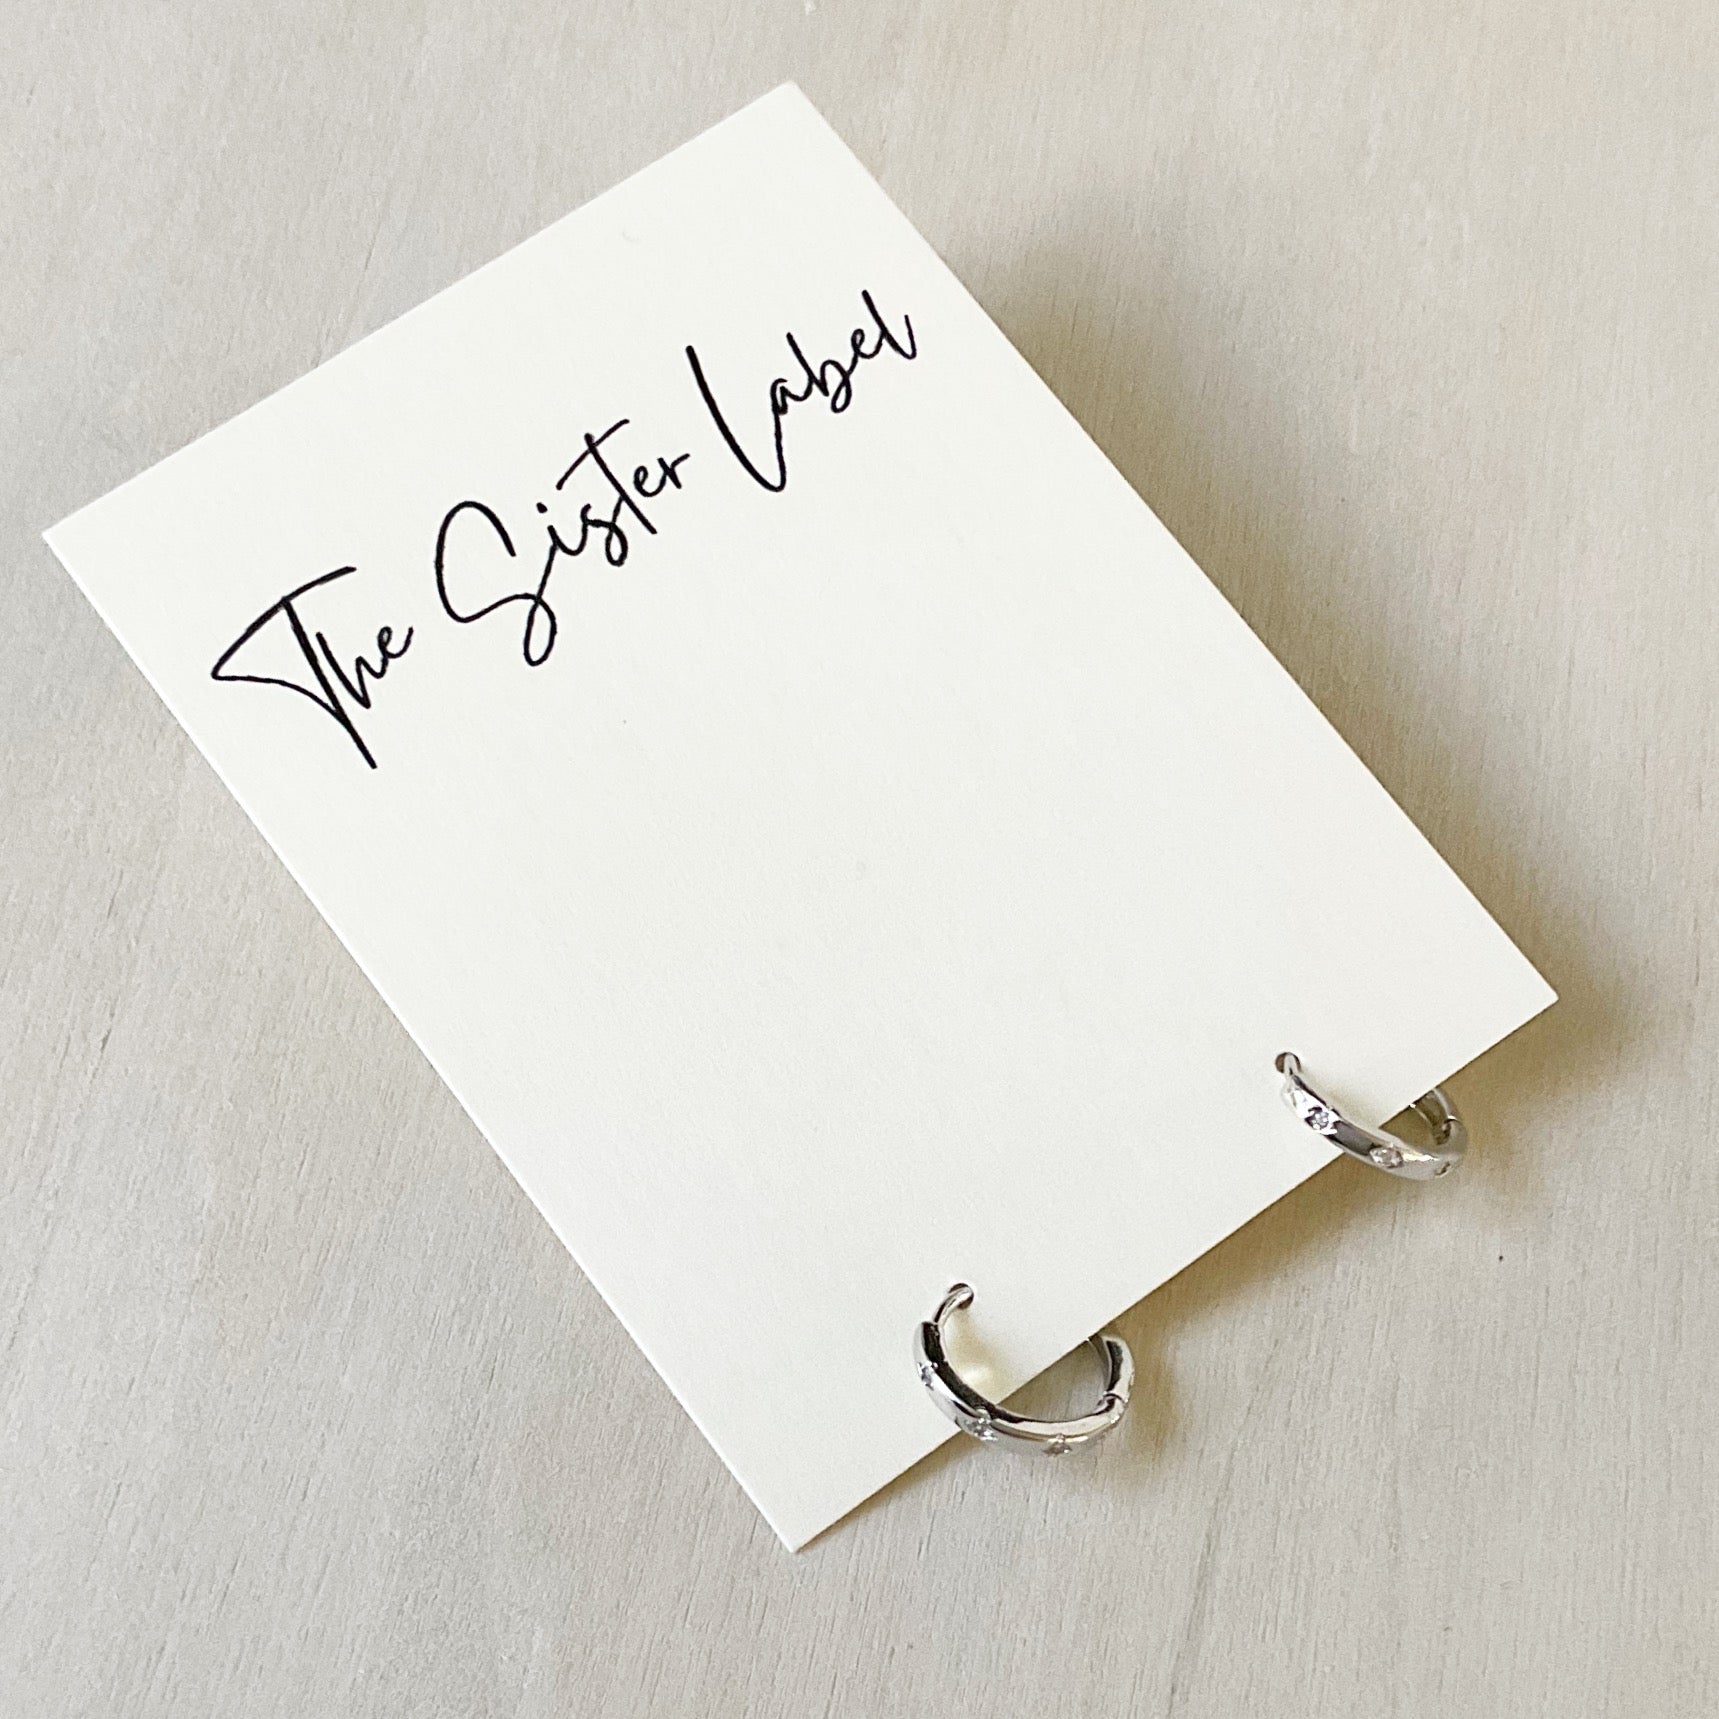 The Sister Label